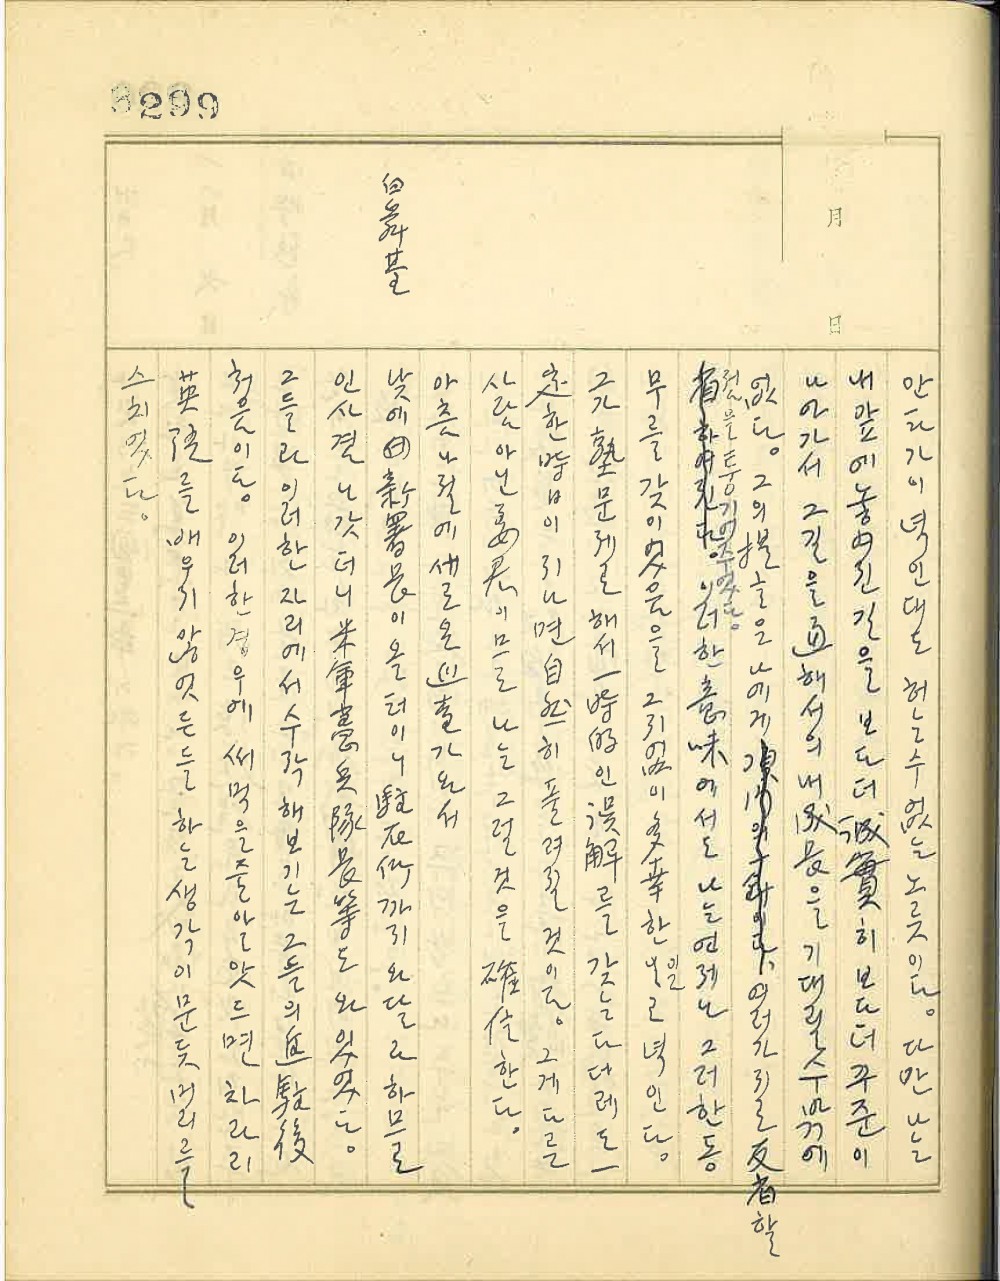 299
月 日
안타가이 녁인대도 허는수 없는 노릇이다. 다만 나는
내 앞에 놓여진 길을 보다더 誠實히 보다더 꾸준이
나아가서 그길을 通해서의 내 成長을 기대릴수 밖에
없다. 그의 提言은 나에게 여러가지로 反省할
것을 퉁기여 주었다. 이러한 意味에서도 나는 언제나 그러한 동
무를 갖이였음을 그지없이 多幸한 일로 녁인다.
그가 塾문제로 해서 一時的인 誤解를 갖는다 다레도 一
定한 時日이 지나면 自然히 풀려질 것이다. 그게 다른
사람 아닌 姜君이므로 나는 그럴것을 確信한다.
아츰나절에 새로온 巡査가 와서
낮에 新署長이 올터이니 駐在所까지 와달라 하므로
白舜基
인사결 나갓더니 米軍憲兵隊長等도 와있었다.
그들과 이러한 자리에서 수작해보기는 그들의 進駐後
처음이다. 이러한 경우에 써먹을줄 알앗드면 차라리
英語를 배우지 않엇든들 하는 생각이 문듯 머리를
스치었다.